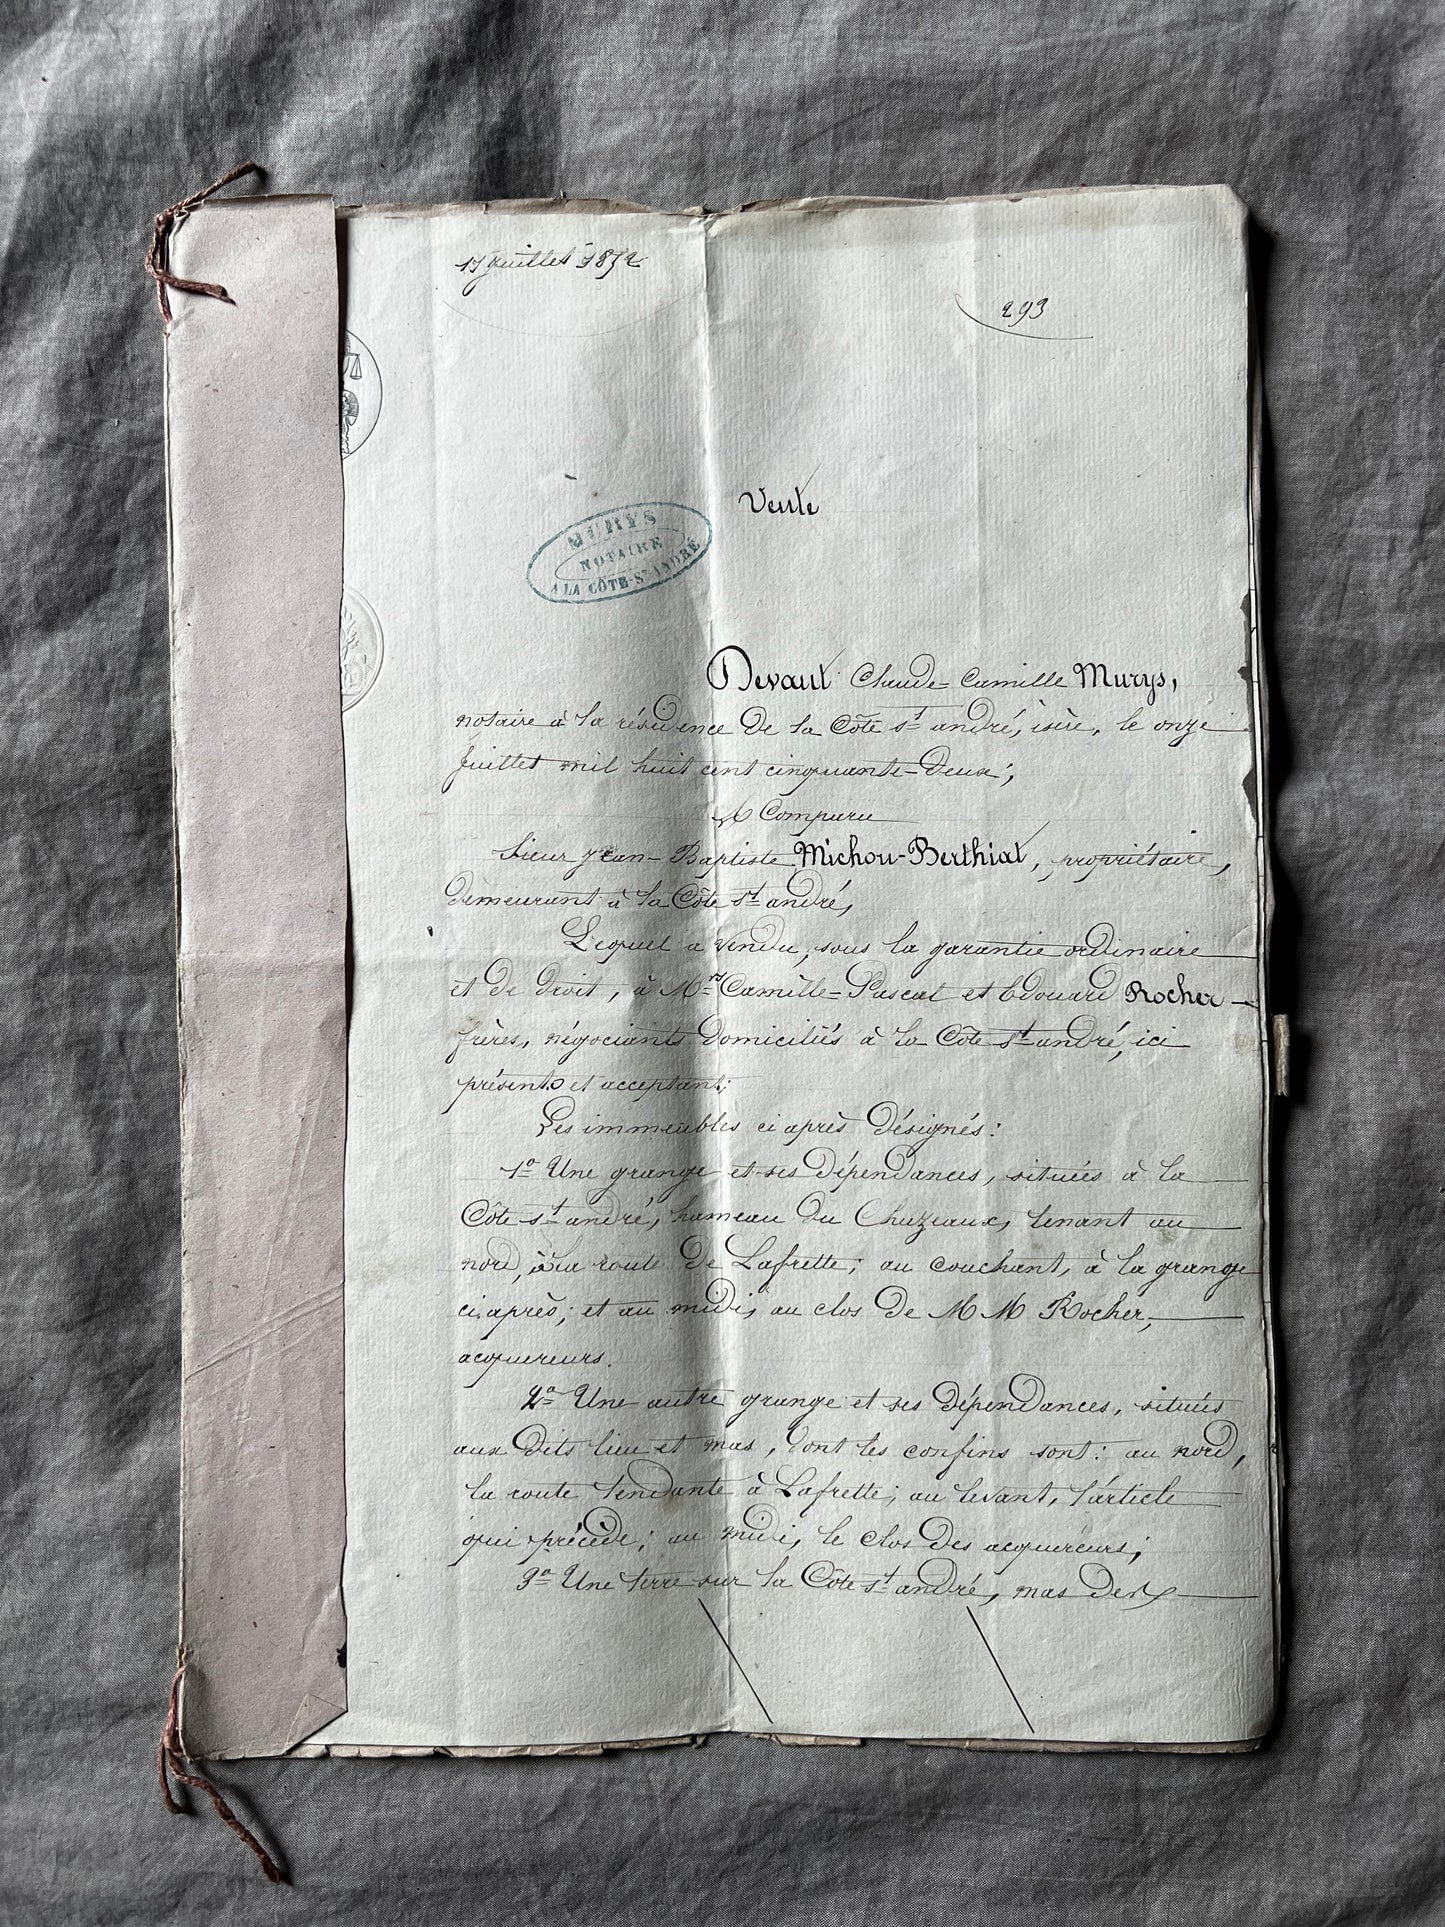 11 Juillet 1852
293
Vente
MURYS
NOTAIRE
A LA CÔTE-ST-ANDRÉ
Devant Claude-Camille Murys,
notaire à la résidence de la Côte St andré, isère, le onze
Juillet mil huit cent cinquante-deux;
A Comparu
Sieur Jean-Baptiste Michou-Berthiat, propriétaire,
demeurant à la Côte St andré,
Lequel a vendu, sous la garantie ordinaire
et de droit, à Mrs Camille-Pascal et Edouard Rocher
frères, négociants domiciliés à la Côte St andré, ici
présents et acceptant;
Les immeubles ci après désignés:
1º Une grange et ses dépendances, situées à la
Côte St andré, hameau du Chuzeaux, tenant au
nord, à la route de Lafrette; au couchant, à la grange
ci après; et au midi, au clos de M M Rocher,
acquereurs.
2º Une autre grange et ses dépendances, situées
aux dits lieu et mas, dont les confins sont: au nord,
la route tendante à Lafrette; au levant, l'article
qui précède; au midi, le clos des acquereurs;
3º Une terre sur la Côte St andré, mas